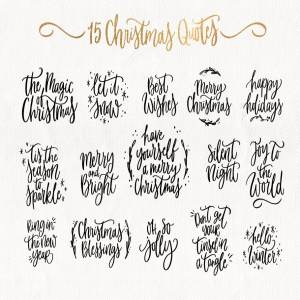 15 Christmas Quotes
the Magic
of
Christmas
let it
snow
Best
Wishes
Merry
Christmas
happy
holidays
'tis the
season
to
sparkle
Merry
and
Bright
have
yourself
a merry
Christmas
Silent
Night
Joy to
the
World
Ring in
the new
year
Christmas
Blessings
oh, so
jolly
Don't get
your
tinsel in
a tangle
hello,
Winter